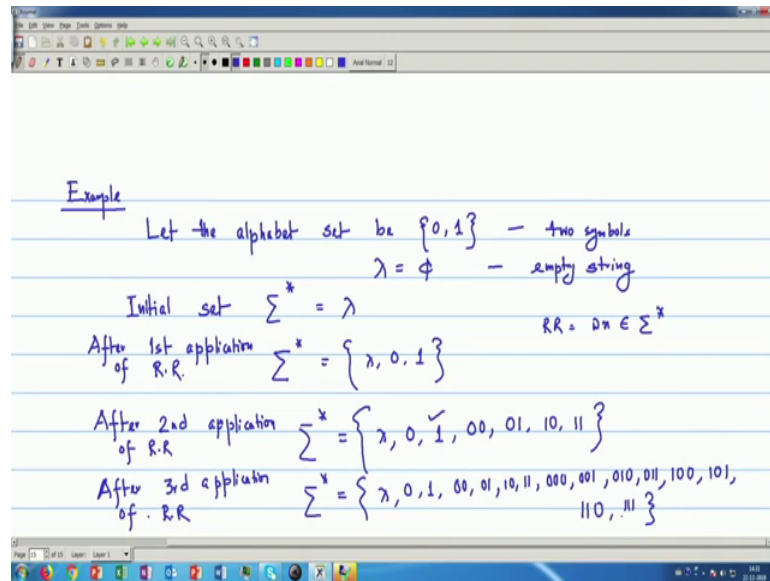 Journal
File Edit View Page Tools Options Help
Arial Normal 12
Example
Let the alphabet set be {0, 1} – two symbols
λ = ϕ – empty string
Initial set Σ* = λ
RR = ωx ∈ Σ*
After 1st application Σ* = {λ, 0, 1}
of R.R.
After 2nd application Σ* = {λ, 0, 1, 00, 01, 10, 11}
of R.R
After 3rd application Σ* = {λ, 0, 1, 00, 01, 10, 11, 000, 001, 010, 011, 100, 101,
of . RR 110, 111}
Page 13 of 15 Layer: Layer 1
14:31